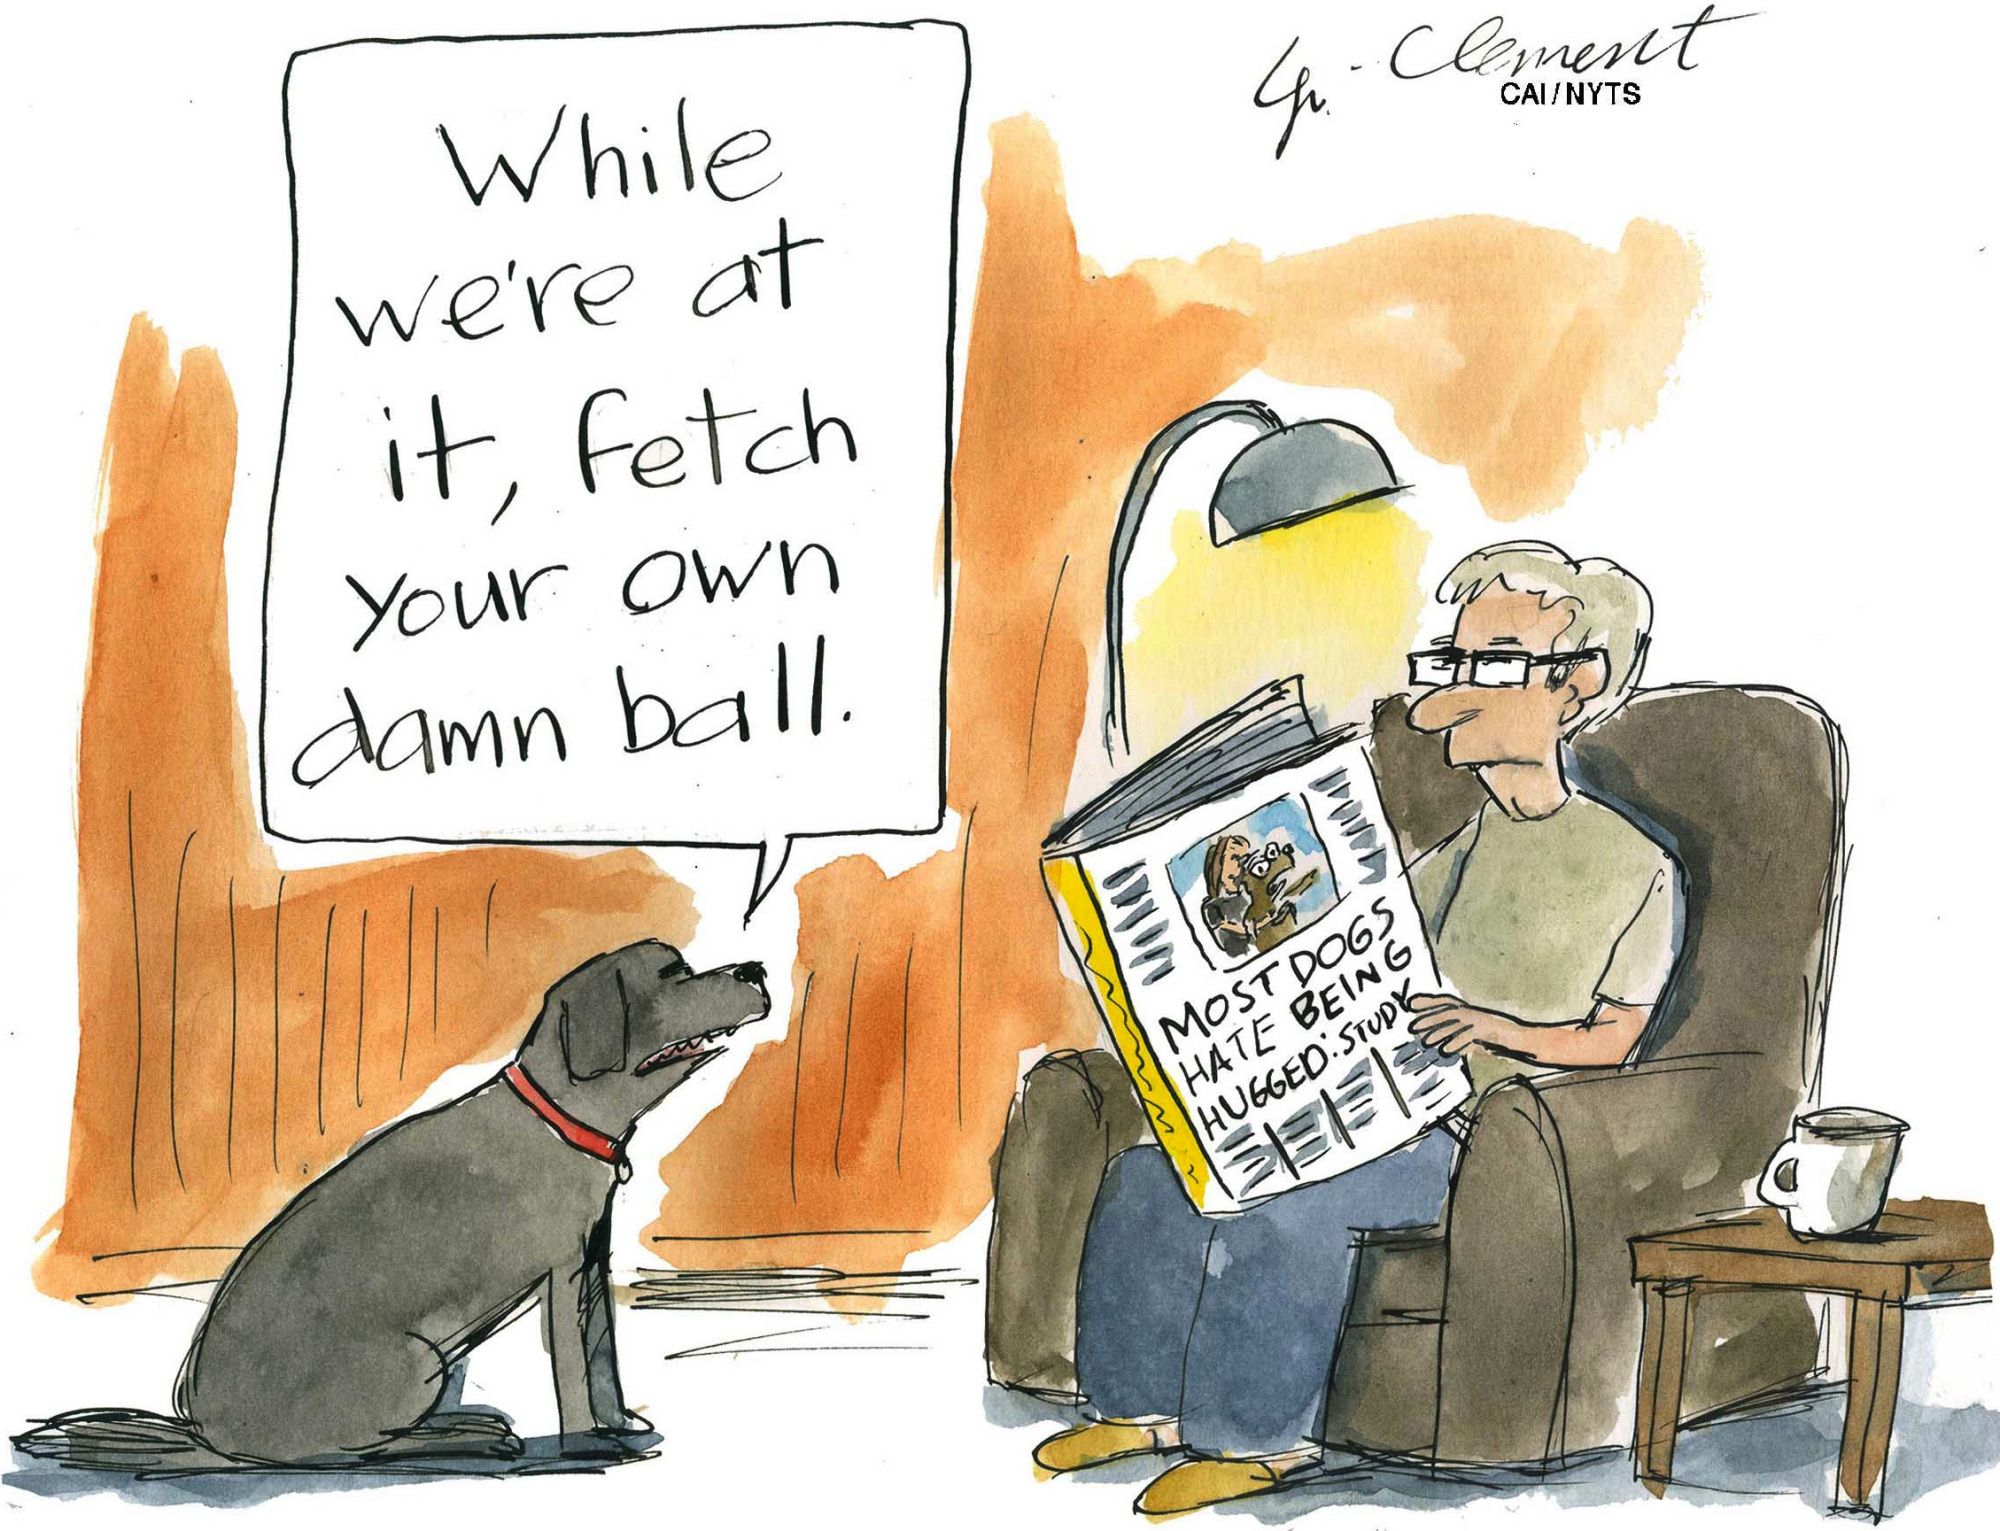 Gy. Clement
CAI/NYTS
While
we're at
it, fetch
your own
damn ball.
MOST DOGS
HATE BEING
HUGGED: STUDY